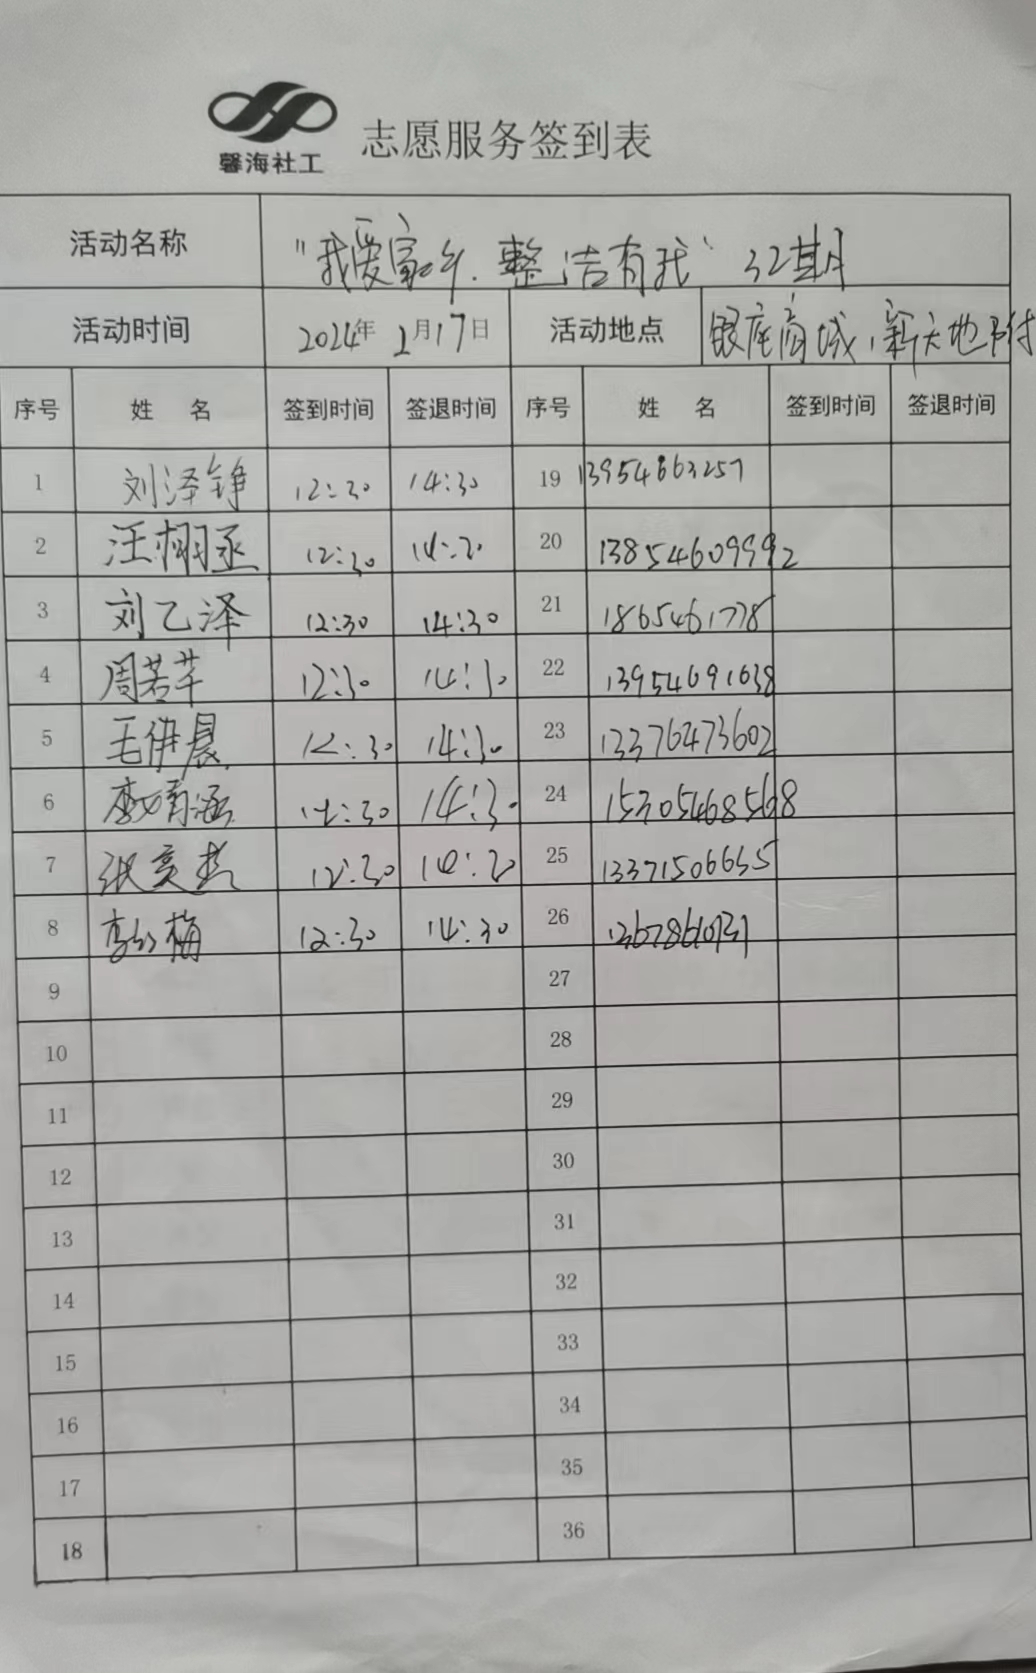 馨海社工
志愿服务签到表
活动名称 "我爱家乡.整洁有我" 32期
活动时间 2024年2月17日 活动地点 银座商城,新天地附
序号 姓 名 签到时间 签退时间 序号 姓 名 签到时间 签退时间
1 刘泽铮 12:30 14:30 19 13954663257
2 汪栩丞 12:30 14:30 20 13854609992
3 刘乙泽 12:30 14:30 21 1865461778
4 周若芊 12:30 14:30 22 13954691638
5 毛伊晨 12:30 14:30 23 13376473602
6 12:30 14:30 24 15305468568
7 12:30 14:30 25 13371506655
8 李红梅 12:30 14:30 26
9 27
10 28
11 29
12 30
13 31
14 32
15 33
16 34
17 35
18 36